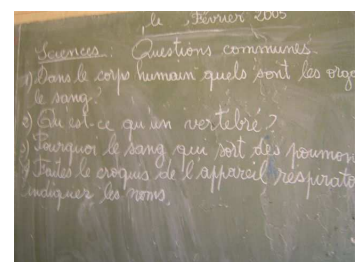 le Février 2005
Sciences : Questions communes
1) Dans le corps humain quels sont les
le sang?
2) Qu'est-ce qu'un vertébré?
3) Pourquoi le sang qui sort des poumon
4) Faites le croquis de l'appareil respirato
indiquez les noms.